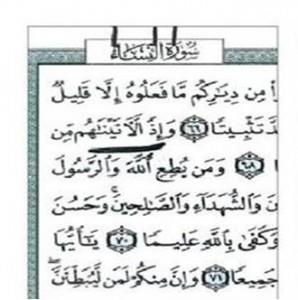 سُورَةُ النِّسَاءِ
مِن دِيَٰرِكُم مَّا فَعَلُوهُ إِلَّا قَلِيلٌ
تَثْبِيتًا ٦٦ وَإِذًا لَّأٓتَيْنَٰهُم مِّن
٦٨ وَمَن يُطِعِ ٱللَّهَ وَٱلرَّسُولَ
وَٱلشُّهَدَآءِ وَٱلصَّٰلِحِينَ ۚ وَحَسُنَ
وَكَفَىٰ بِٱللَّهِ عَلِيمًا ٧٠ يَٰٓأَيُّهَا
جَمِيعًا ٧١ وَإِنَّ مِنكُمْ لَمَن لَّيُبَطِّئَنَّ